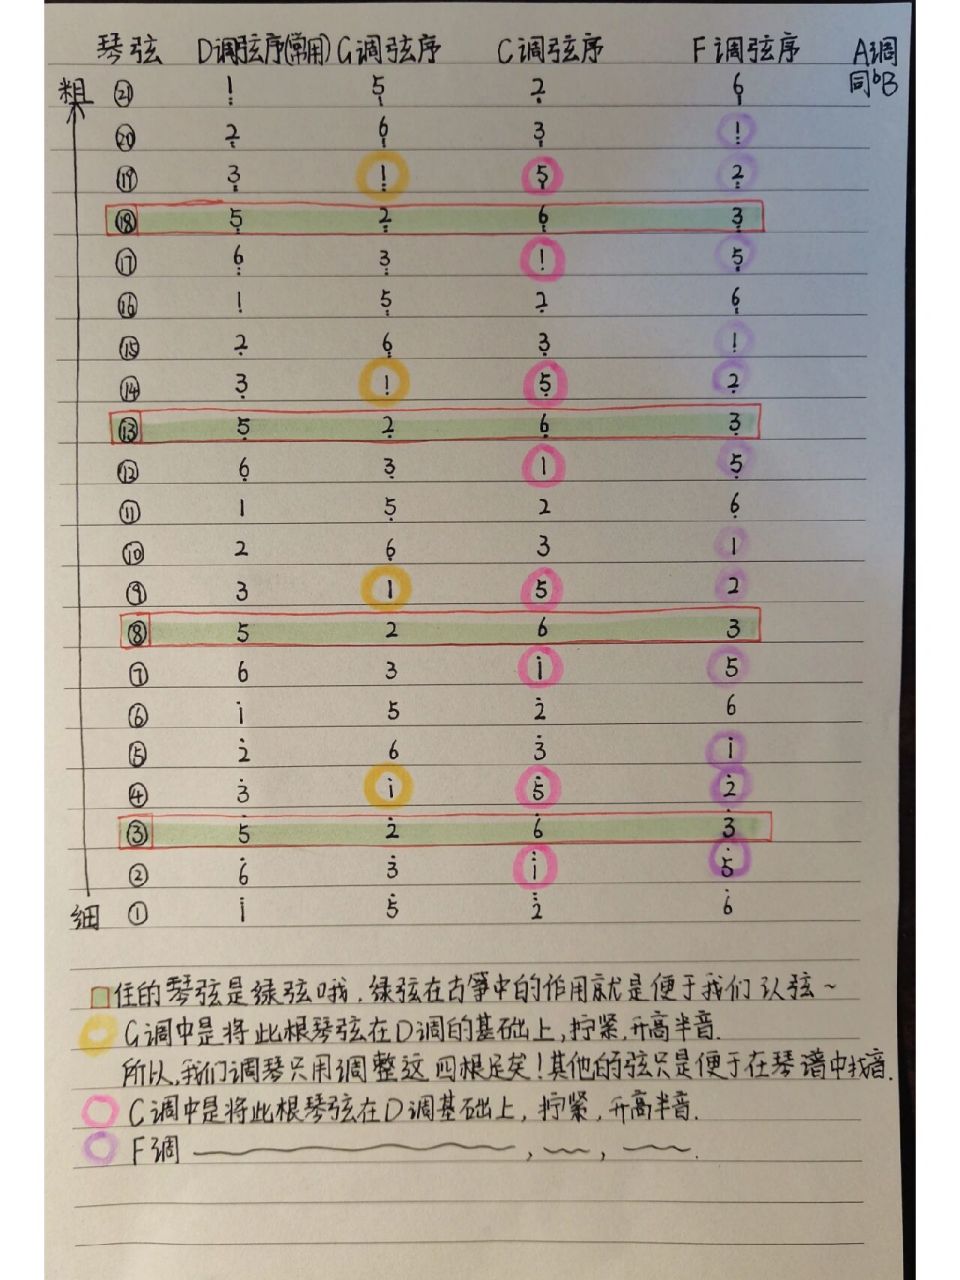 琴弦 D调弦序(常用) G调弦序 C调弦序 F调弦序 A调
粗 ㉑ 1 5 2 6 同ᵇB
⑳ 2 6 3 1
⑲ 3 1 5 2
⑱ 5 2 6 3
⑰ 6 3 1 5
⑯ 1 5 2 6
⑮ 2 6 3 1
⑭ 3 1 5 2
⑬ 5 2 6 3
⑫ 6 3 1 5
⑪ 1 5 2 6
⑩ 2 6 3 1
⑨ 3 1 5 2
⑧ 5 2 6 3
⑦ 6 3 1 5
⑥ 1 5 2 6
⑤ 2 6 3 1
④ 3 1 5 2
③ 5 2 6 3
② 6 3 1 5
细 ① 1 5 2 6
住的琴弦是绿弦哦.绿弦在古筝中的作用就是便于我们认弦~
G调中是将此根琴弦在D调的基础上,拧紧,升高半音.
所以,我们调琴只用调整这四根足矣!其他的弦只是便于在琴谱中找音.
C调中是将此根琴弦在D调基础上,拧紧,升高半音.
F调